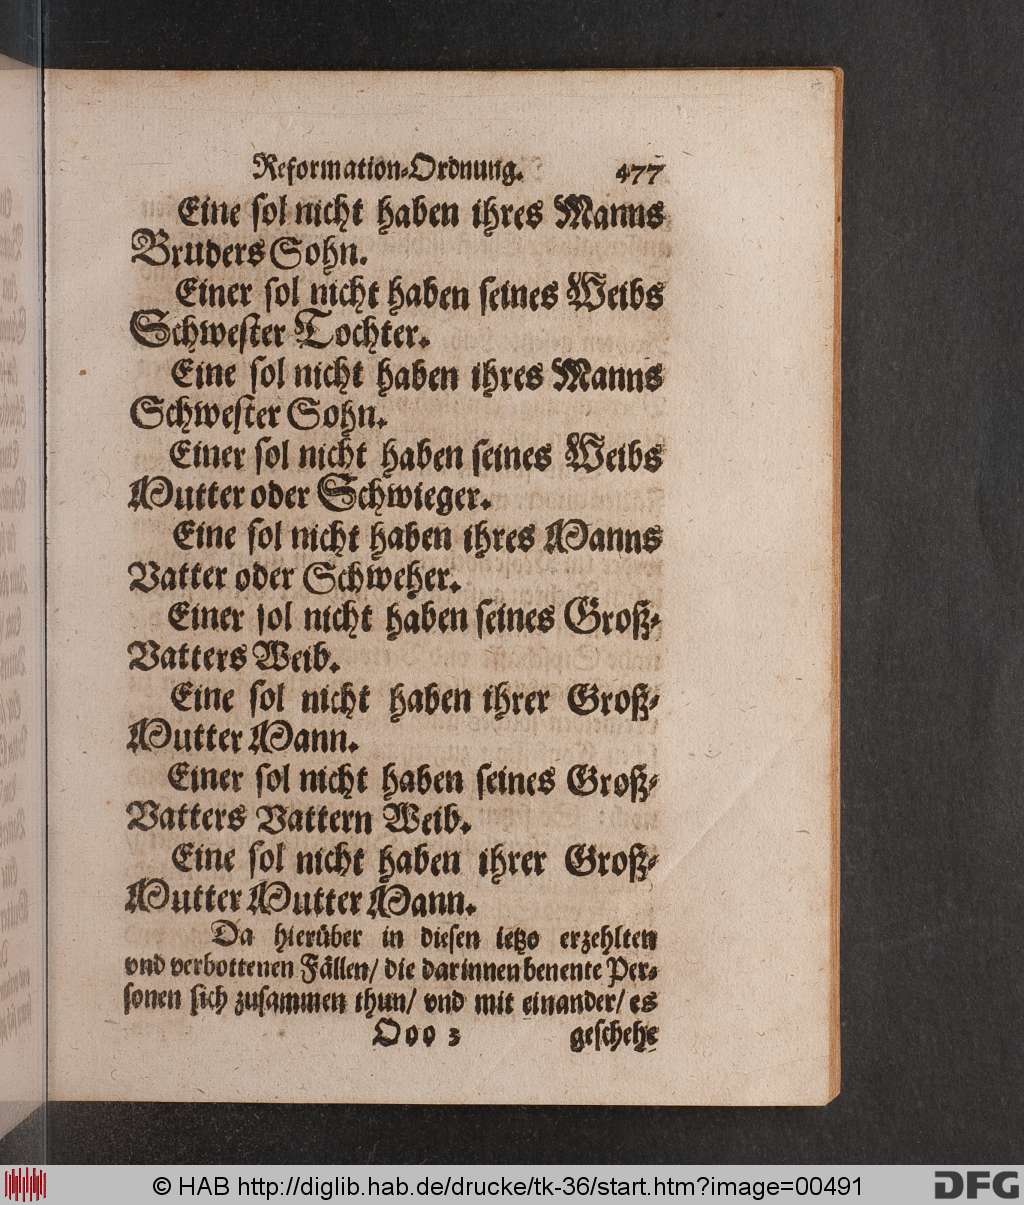 Reformation-Ordnung. 477
Eine sol nicht haben ihres Manns
Bruders Sohn.
Einer sol nicht haben seines Weibs
Schwester Tochter.
Eine sol nicht haben ihres Manns
Schwester Sohn.
Einer sol nicht haben seines Weibs
Mutter oder Schwieger.
Eine sol nicht haben ihres Manns
Vatter oder Schweher.
Einer sol nicht haben seines Groß-
Vatters Weib.
Eine sol nicht haben ihrer Groß-
Mutter Mann.
Einer sol nicht haben seines Groß-
Vatters Vattern Weib.
Eine sol nicht haben ihrer Groß-
Mutter Mutter Mann.
Da hierüber in diesen ietzo erzehlten
vnd verbottenen Fällen/ die darinnen benente Per-
sonen sich zusammen thun/ vnd mit einander/ es
Ooo 3 geschehe
© HAB http://diglib.hab.de/drucke/tk-36/start.htm?image=00491
DFG